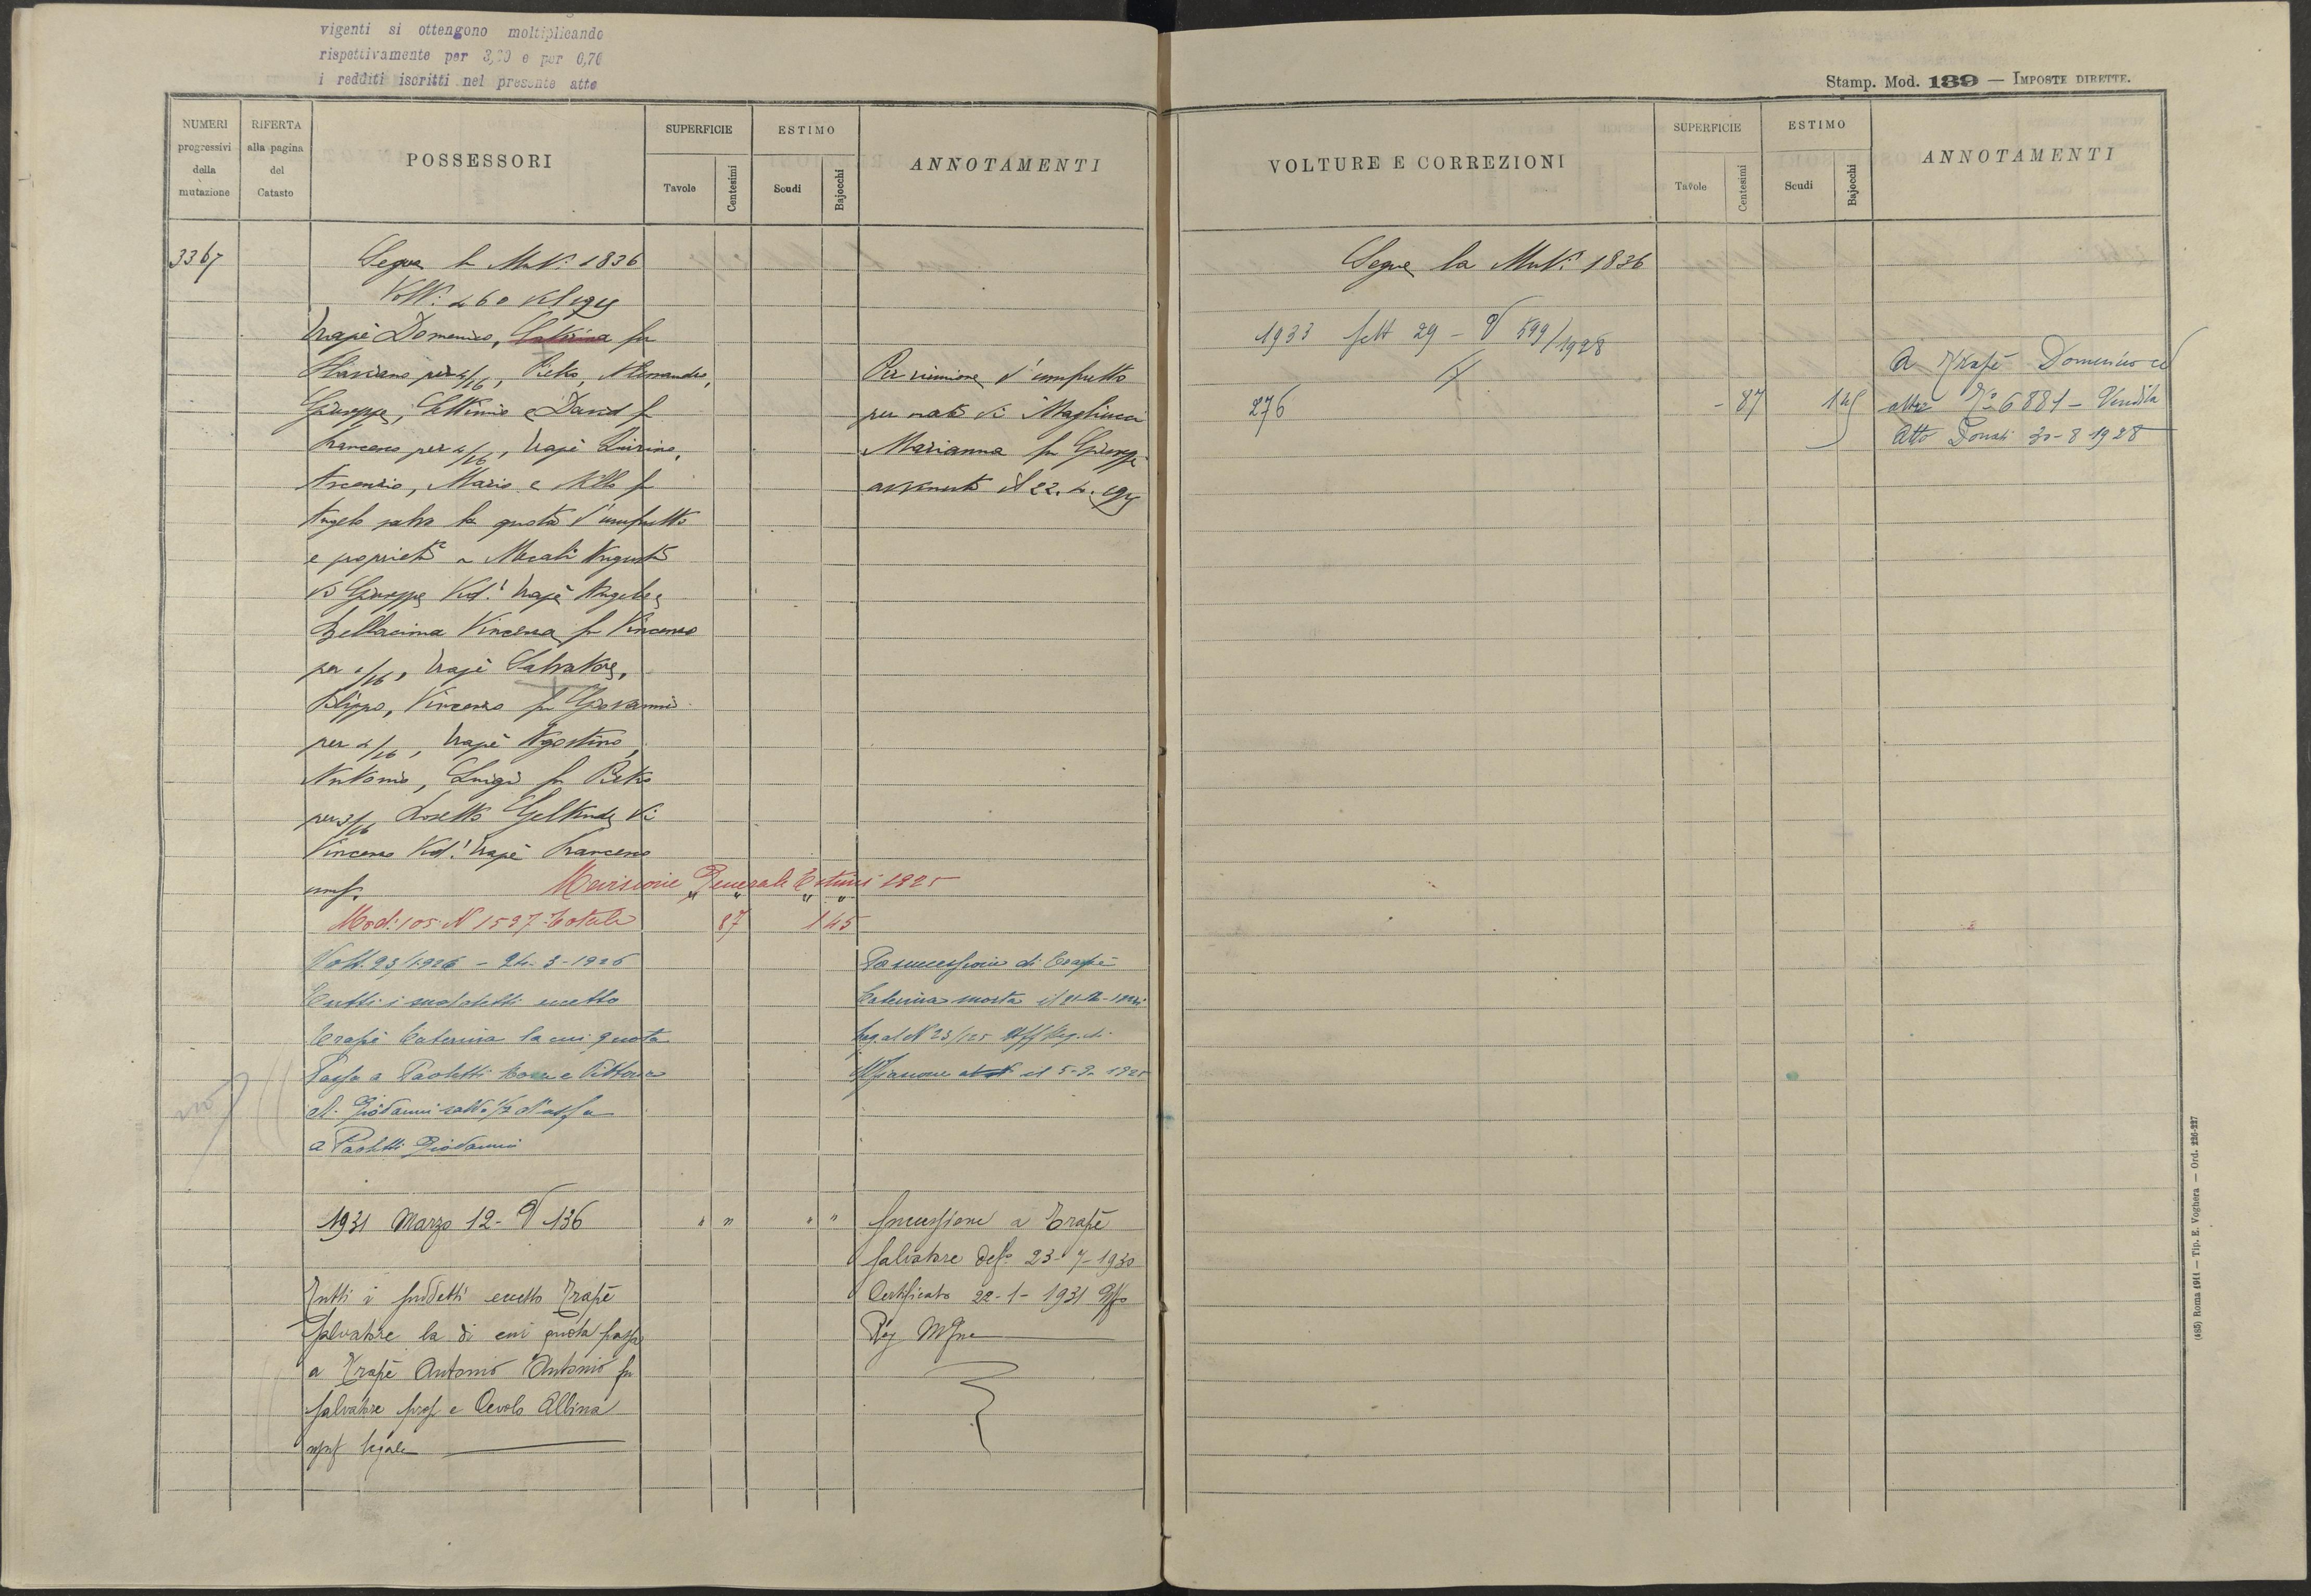 vigenti si ottengono moltiplicando
rispettivamente per 3, e per 0,76
i redditi iscritti nel presente atto
NUMERI progressivi della mutazione
RIFERTA alla pagina del Catasto
POSSESSORI
SUPERFICIE
Tavole
Centesimi
ESTIMO
Scudi
Bajocchi
ANNOTAMENTI
3367
Segue la Mut. 1836
Volt. 260 del 1925
Trapè Domenico, Catterina fu
Flaviano per 4/16, Pietro, Alessandro,
Giuseppe, Settimio e David fu
Francesco per 4/16, Trapè Quirino,
Ascenzio, Mario e Nello fu
Angelo salva la quota d'usufrutto
e proprietà a Mecali Augusta
di Giuseppe Ved. Trapè Angelo e
Bellacima Vincenza fu Vincenzo
per /16, Trapè Salvatore,
Filippo, Vincenzo fu Giovanni
per 4/16, Trapè Agostino,
Antonio, Luigi fu Pietro
per 3/16 Rosetto Geltrude di
Vincenzo Ved. Trapè Francesco
usuf.
Per riunione d'usufrutto
per morte di Magliucci
Marianna fu Giuseppe
avvenuta il 22.4.1925
Revisione Generale Estimi 1925
Mod. 105 N 1527 Totale 87 145
Volt. 23/1926 - 24-3-1926
Tutti i suddetti eccetto
Trapè Caterina la cui quota
Passa a Paoletti e Vittorio
di Giovanni salvo 1/2 d'usuf a
a Paoletti Giovanni
Pa successione di Trapè
Caterina morta il
Reg. al N 23/125 Uff Reg. di
Mfiascone il 5-9-1925
1931 Marzo 12 - V 136 " " " "
Tutti i suddetti eccetto Trapè
Salvatore la di cui quota passa
a Trapè Antonio Antonio fu
Salvatore prop e Cevolo Albina
usuf legale
Successione a Trapè
Salvatore def. 23-7-1930
Certificato 22-1-1931 Uffo
Reg Mfne
Stamp. Mod. 139 — IMPOSTE DIRETTE.
VOLTURE E CORREZIONI
SUPERFICIE
Tavole
Centesimi
ESTIMO
Scudi
Bajocchi
ANNOTAMENTI
Segue la Mut. 1836
1933 Sett 29 - V 599/1928
276 - 87 145
A Trapè Domenico ed
altri No 6881 - Vendita
Atto Donati 30-8-1928
(485) Roma 1911 — Tip. E. Voghera — Ord. 226-227